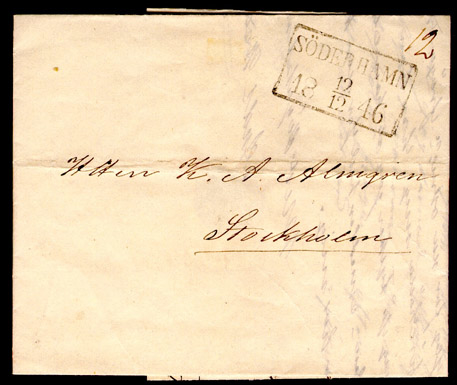 12
SÖDERHAMN
18 12/12 46
HHerr K. A. Almgren
Stockholm